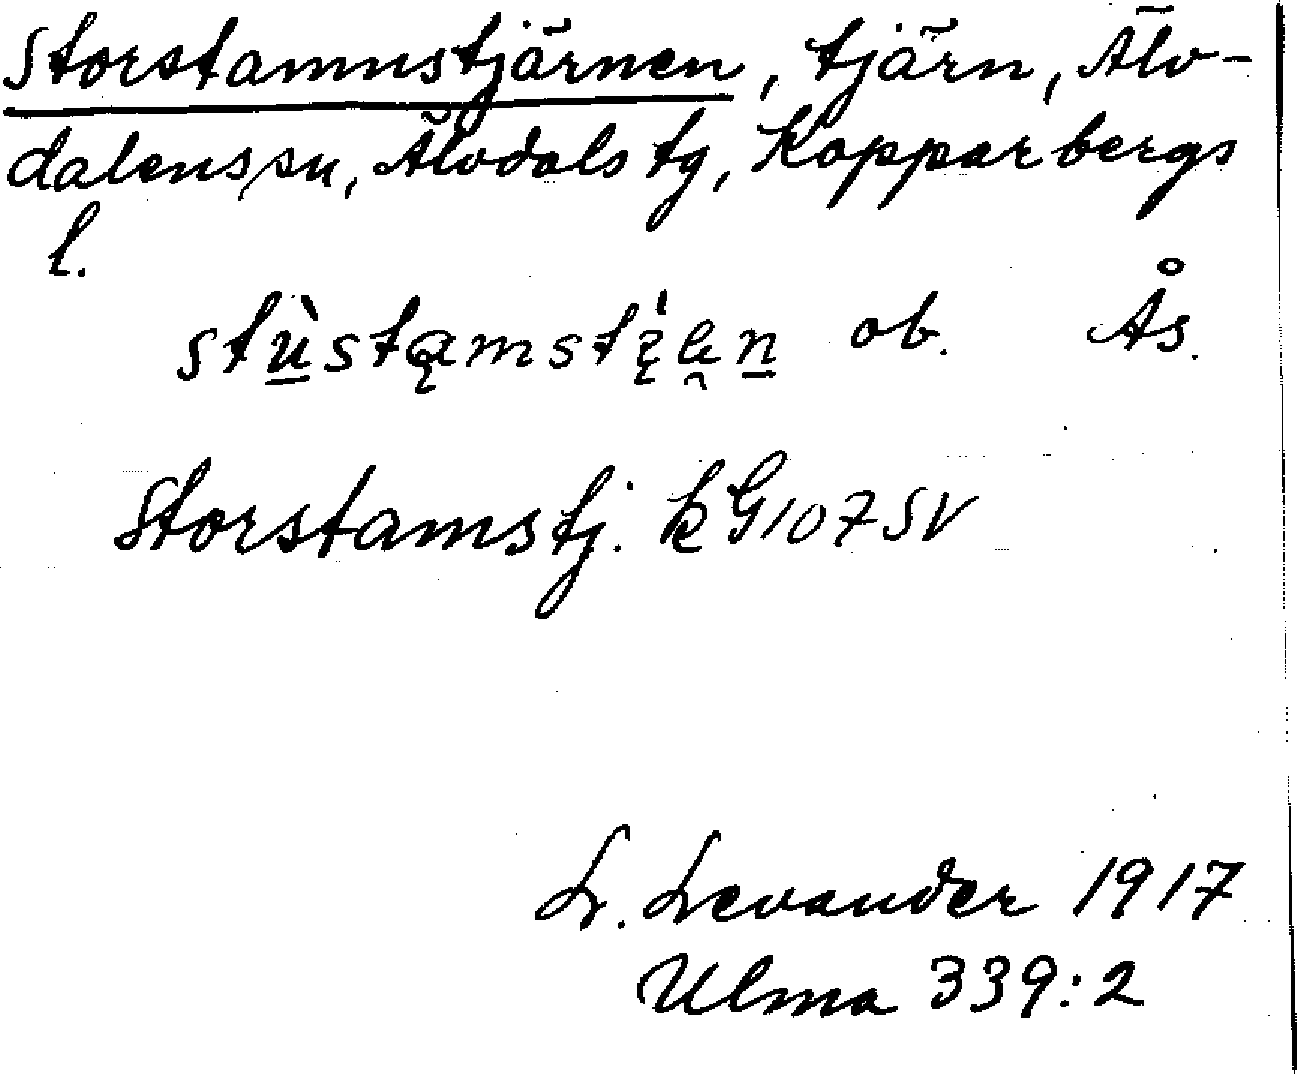 Storstamnstjärnen, tjärn, Älv-
dalens sn, Älvdals tg, Kopparbergs
l.
stù̲stąmstı̨́e̯n̲ ob. Ås.
Storstamstj. k G107SV
L. Levander 1917
Ulma 339:2